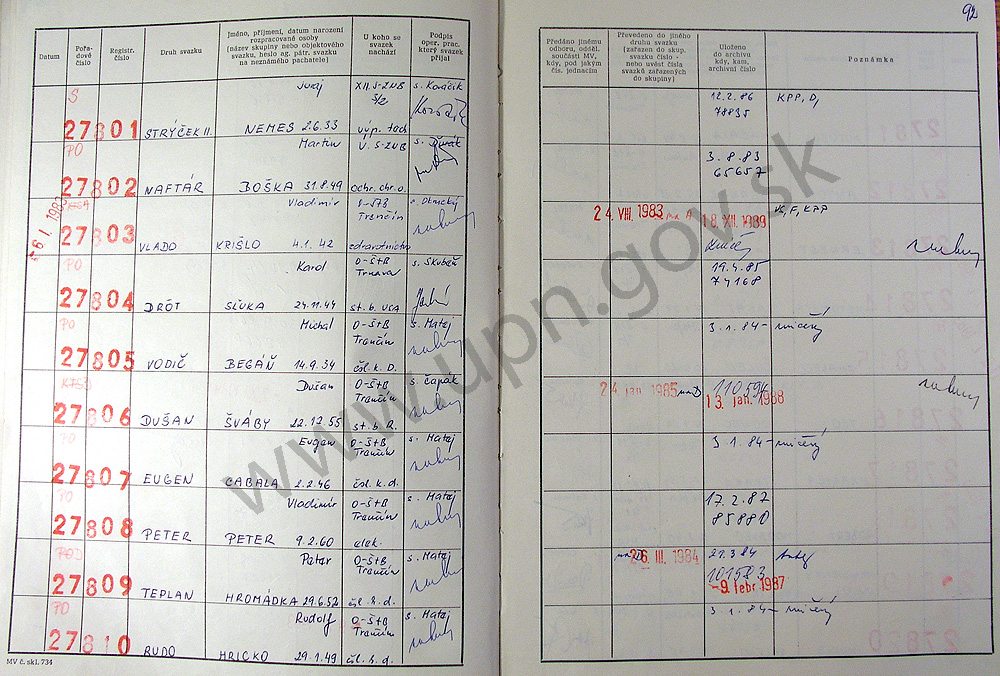 92
Datum
Pořa-
dové
číslo
Registr.
číslo
Druh svazku
Jméno, příjmení, datum narození
rozpracované osoby
(název skupiny nebo objektového
svazku, heslo ag. pátr. svazku
na neznámého pachatele)
U koho se
svazek
nachází
Podpis
oper. prac.
který svazek
přijal
Předáno jinému
odboru, odděl.
součásti MV,
kdy, pod jakým
čís. jednacím
Převedeno do jiného
druhu svazku
(zařazen do skup.
svazku číslo -
nebo uvést čísla
svazků zařazených
do skupiny)
Uloženo
do archivu
kdy, kam,
archivní číslo
Poznámka
S
27801 STRÝČEK II. Juraj
NEMES 2.6.33 XII. S-ZNB
výp. tech s. Kováčik
12.2.86
78835 KPP, D,
PO
27802 NAFTÁR Martin
BOŠKA 31.8.49 V. S-ZNB
ochr. chr. o.
3.8.83
65657
-6 1. 1983
27803 VLADO Vladimír
KRIŠLO 4.1.42
Trenčín
zdravotníctvo
24. VIII. 1983 na A 18. XII. 1989
PO
27804 DRÔT Karol
SLUKA 24.11.44 O-ŠtB
Trnava
19.4.85
74168
PO
27805 VODIČ Michal
BEGÁŇ 14.9.34 O-ŠtB
Trenčín
čsl. k. D. s. Matej
3.1.84 - zničený
27806 DUŠAN Dušan
ŠVÁBY 22.12.55 O-ŠtB
Trenčín
s. Čapák
24. jan. 1985 na D 110594
13. jan. 1988
PO
27807 EUGEN Eugen
CABALA 2.2.46 O-ŠtB
Trenčín
čsl. k. d. s. Matej
3.1.84 - zničený
PO
27808 PETER Vladimír
PETER 9.2.60 O-ŠtB
Trenčín
elek. s. Matej
17.2.87
85880
27809 TEPLAN Peter
HROMÁDKA 29.6.52 O-ŠtB
Trenčín
čsl. k. d. s. Matej
na D 26. III. 1984 21.3.84
101583
-9. febr. 1987
PO
27810 RUDO Rudolf
HRICKO 29.1.49 O-ŠtB
Trenčín
čsl. k. d. s. Matej
3.1.84 - zničený
MV č. skl. 734
www.upn.gov.sk